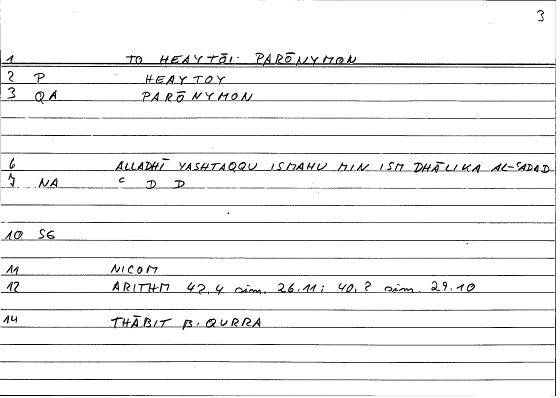 3
1 TO HEAYTŌI PARŌNYMON
2 P HEAYTOY
3 QA PARŌNYMON
6 ALLADHĪ YASHTAQQU ISMAHU MIN ISM DHĀLIKA AL-ʿADAD
7 NA C D D
10 SG
11 NICOM
12 ARITHM 42,4 sim. 26.11; 40,? sim. 29.10
14 THĀBIT B. QURRA